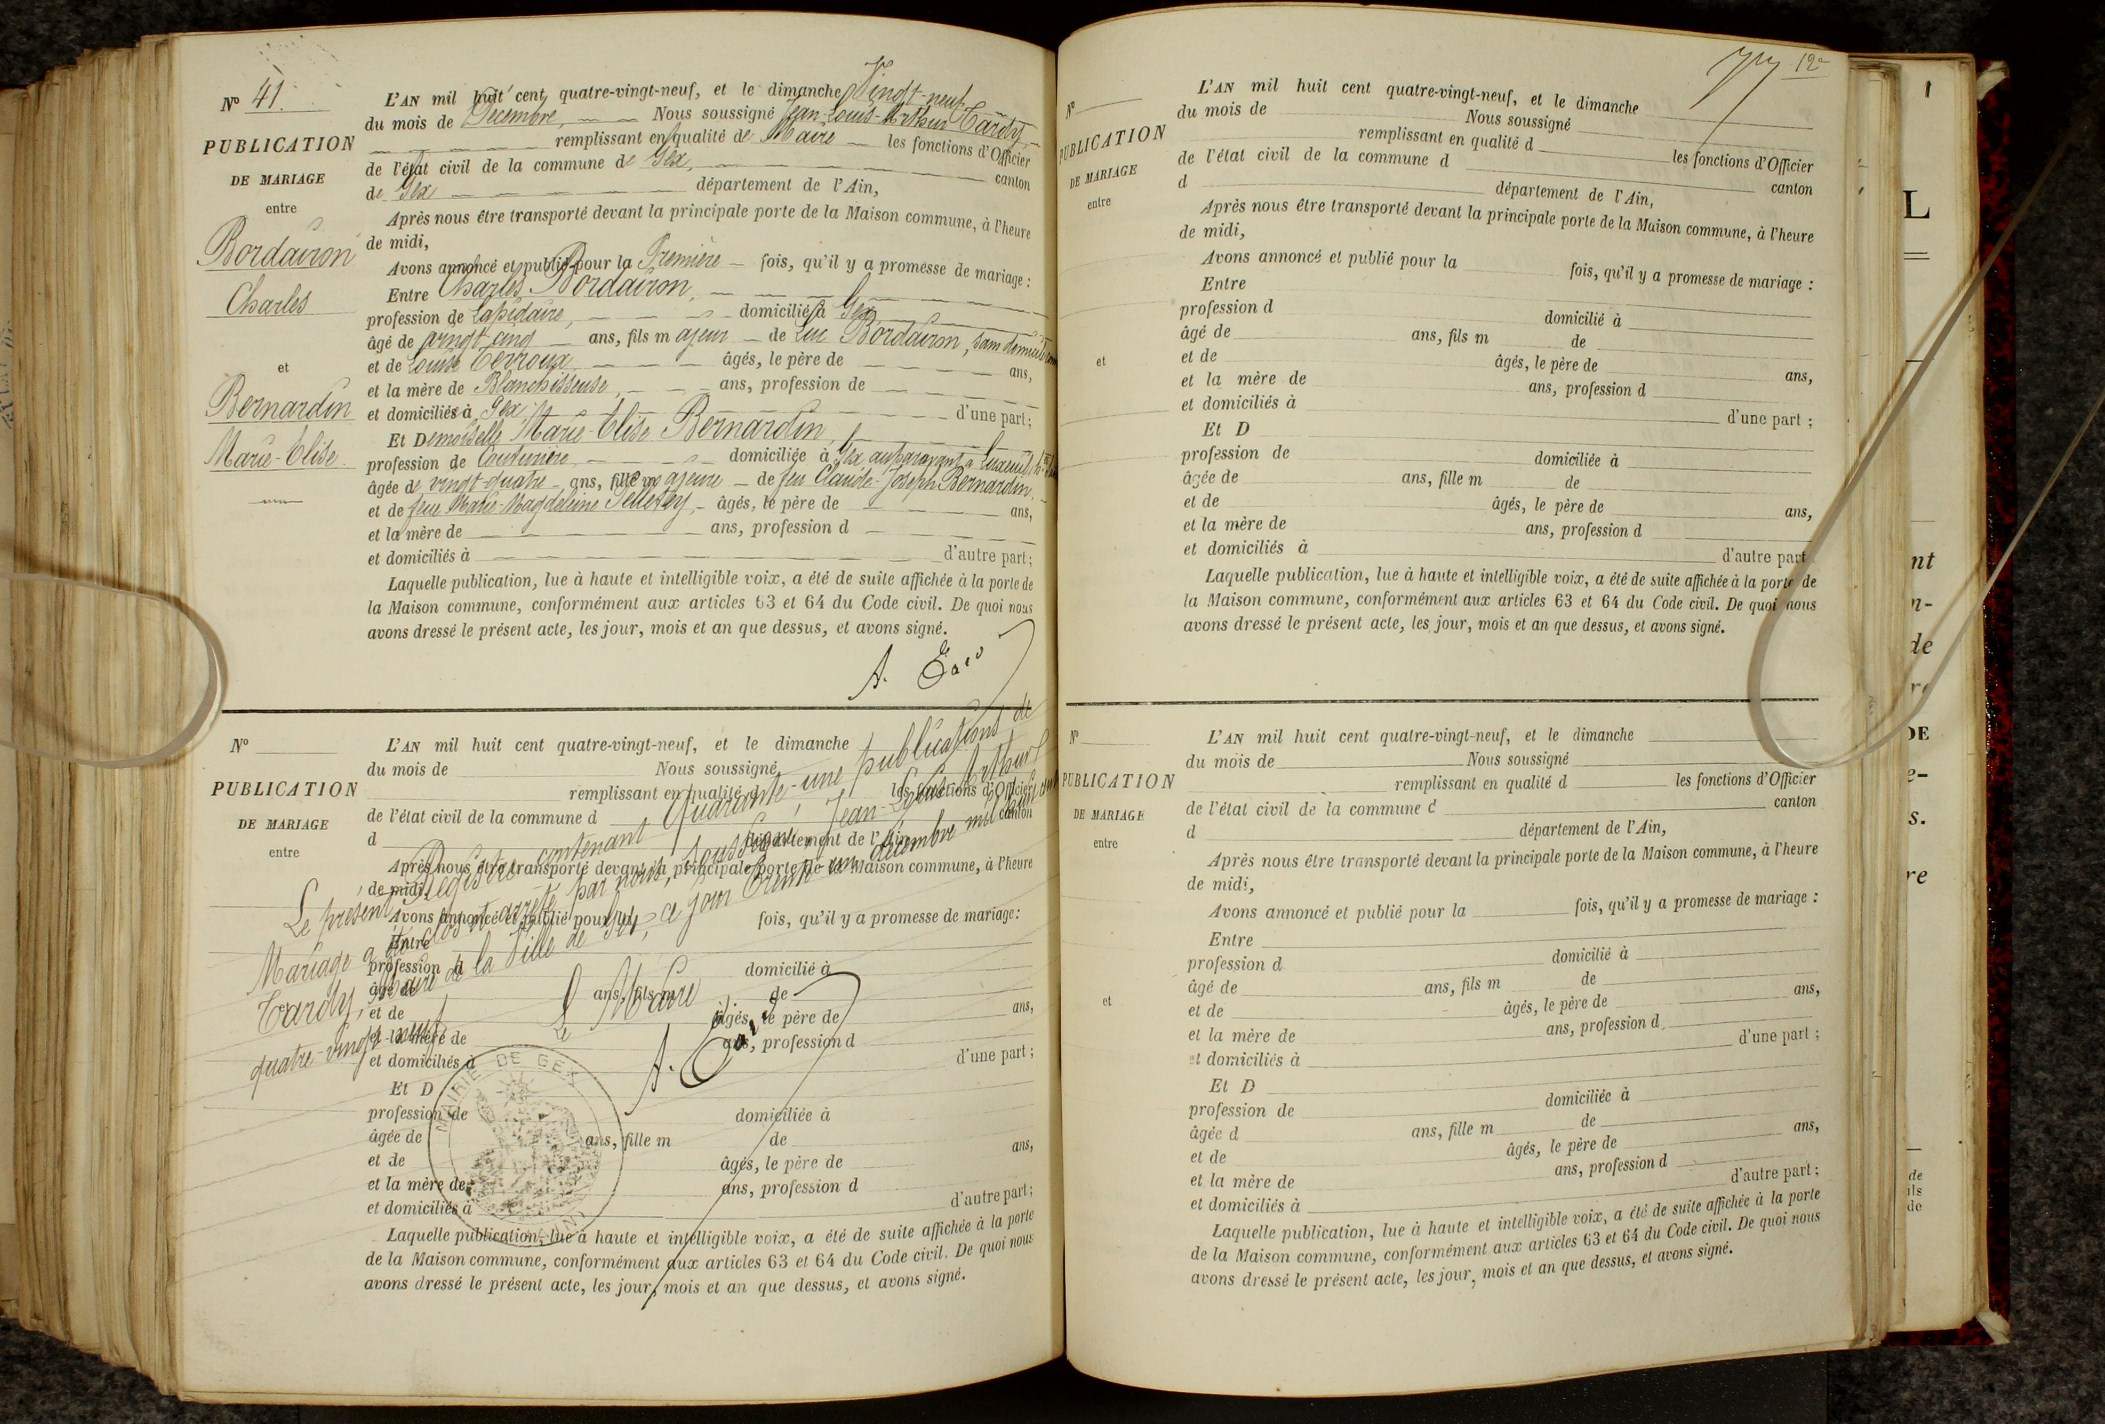 N° 41.
PUBLICATION
DE MARIAGE
entre
Bordairon
Charles
et
Bernardin
Marie-Elise
L'AN mil huit cent quatre-vingt-neuf, et le dimanche Vingt-neuf
du mois de Décembre, Nous soussigné Jean-Louis-Arthur Tardy,
remplissant en qualité de Maire les fonctions d'Officier
de l'état civil de la commune de Gex, canton
de Gex département de l'Ain,
Après nous être transporté devant la principale porte de la Maison commune, à l'heure
de midi,
Avons annoncé et publié pour la Première fois, qu'il y a promesse de mariage :
Entre Charles Bordairon,
profession de Lapidaire, domicilié à Gex
âgé de vingt-cinq ans, fils majeur de Luc Bordairon, sans domicile
et de Louise âgés, le père de ans,
et la mère de Blanchisseuse, ans, profession de
et domiciliés à Gex d'une part ;
Et Demoiselle Marie-Elise Bernardin,
profession de Couturière domiciliée à Gex, auparavant à Luxeuil
âgée de vingt-quatre ans, fille majeure de feu Claude-Joseph Bernardin,
et de feue Marie-Magdeleine âgés, le père de ans,
et la mère de ans, profession d
et domiciliés à d'autre part ;
Laquelle publication, lue à haute et intelligible voix, a été de suite affichée à la porte de
la Maison commune, conformément aux articles 63 et 64 du Code civil. De quoi nous
avons dressé le présent acte, les jour, mois et an que dessus, et avons signé.
N°
PUBLICATION
DE MARIAGE
entre
L'AN mil huit cent quatre-vingt-neuf, et le dimanche
du mois de Nous soussigné
remplissant en qualité d les fonctions d'Officier
de l'état civil de la commune d canton
d département de l'Ain,
Après nous être transporté devant la principale porte de la Maison commune, à l'heure
de midi,
Avons annoncé et publié pour la fois, qu'il y a promesse de mariage :
Entre
profession d domicilié à
âgé de ans, fils m de
et de âgés, le père de ans,
et la mère de ans, profession d
et domiciliés à d'une part ;
Et D
profession de domiciliée à
âgée de ans, fille m de
et de âgés, le père de ans,
et la mère de ans, profession d
et domiciliés à d'autre part ;
Laquelle publication, lue à haute et intelligible voix, a été de suite affichée à la porte
de la Maison commune, conformément aux articles 63 et 64 du Code civil. De quoi nous
avons dressé le présent acte, les jour, mois et an que dessus, et avons signé.
Le présent Registre contenant Quarante-une publications de
Mariage a été clos et arrêté par nous, soussigné, Jean-Louis Arthur
Tardy, Maire de la Ville de Gex, ce jour trente-un décembre mil huit cent
quatre-vingt-neuf
Le Maire
MAIRIE DE GEX
12
N°
PUBLICATION
DE MARIAGE
entre
et
L'AN mil huit cent quatre-vingt-neuf, et le dimanche
du mois de Nous soussigné
remplissant en qualité d les fonctions d'Officier
de l'état civil de la commune d canton
d département de l'Ain,
Après nous être transporté devant la principale porte de la Maison commune, à l'heure
de midi,
Avons annoncé et publié pour la fois, qu'il y a promesse de mariage :
Entre
profession d domicilié à
âgé de ans, fils m de
et de âgés, le père de ans,
et la mère de ans, profession d
et domiciliés à d'une part ;
Et D
profession de domiciliée à
âgée de ans, fille m de
et de âgés, le père de ans,
et la mère de ans, profession d
et domiciliés à d'autre part
Laquelle publication, lue à haute et intelligible voix, a été de suite affichée à la porte de
la Maison commune, conformément aux articles 63 et 64 du Code civil. De quoi nous
avons dressé le présent acte, les jour, mois et an que dessus, et avons signé.
N°
PUBLICATION
DE MARIAGE
entre
et
L'AN mil huit cent quatre-vingt-neuf, et le dimanche
du mois de Nous soussigné
remplissant en qualité d les fonctions d'Officier
de l'état civil de la commune d canton
d département de l'Ain,
Après nous être transporté devant la principale porte de la Maison commune, à l'heure
de midi,
Avons annoncé et publié pour la fois, qu'il y a promesse de mariage :
Entre
profession d domicilié à
âgé de ans, fils m de
et de âgés, le père de ans,
et la mère de ans, profession d
et domiciliés à d'une part ;
Et D
profession de domiciliée à
âgée d ans, fille m de
et de âgés, le père de ans,
et la mère de ans, profession d
et domiciliés à d'autre part ;
Laquelle publication, lue à haute et intelligible voix, a été de suite affichée à la porte
de la Maison commune, conformément aux articles 63 et 64 du Code civil. De quoi nous
avons dressé le présent acte, les jour, mois et an que dessus, et avons signé.